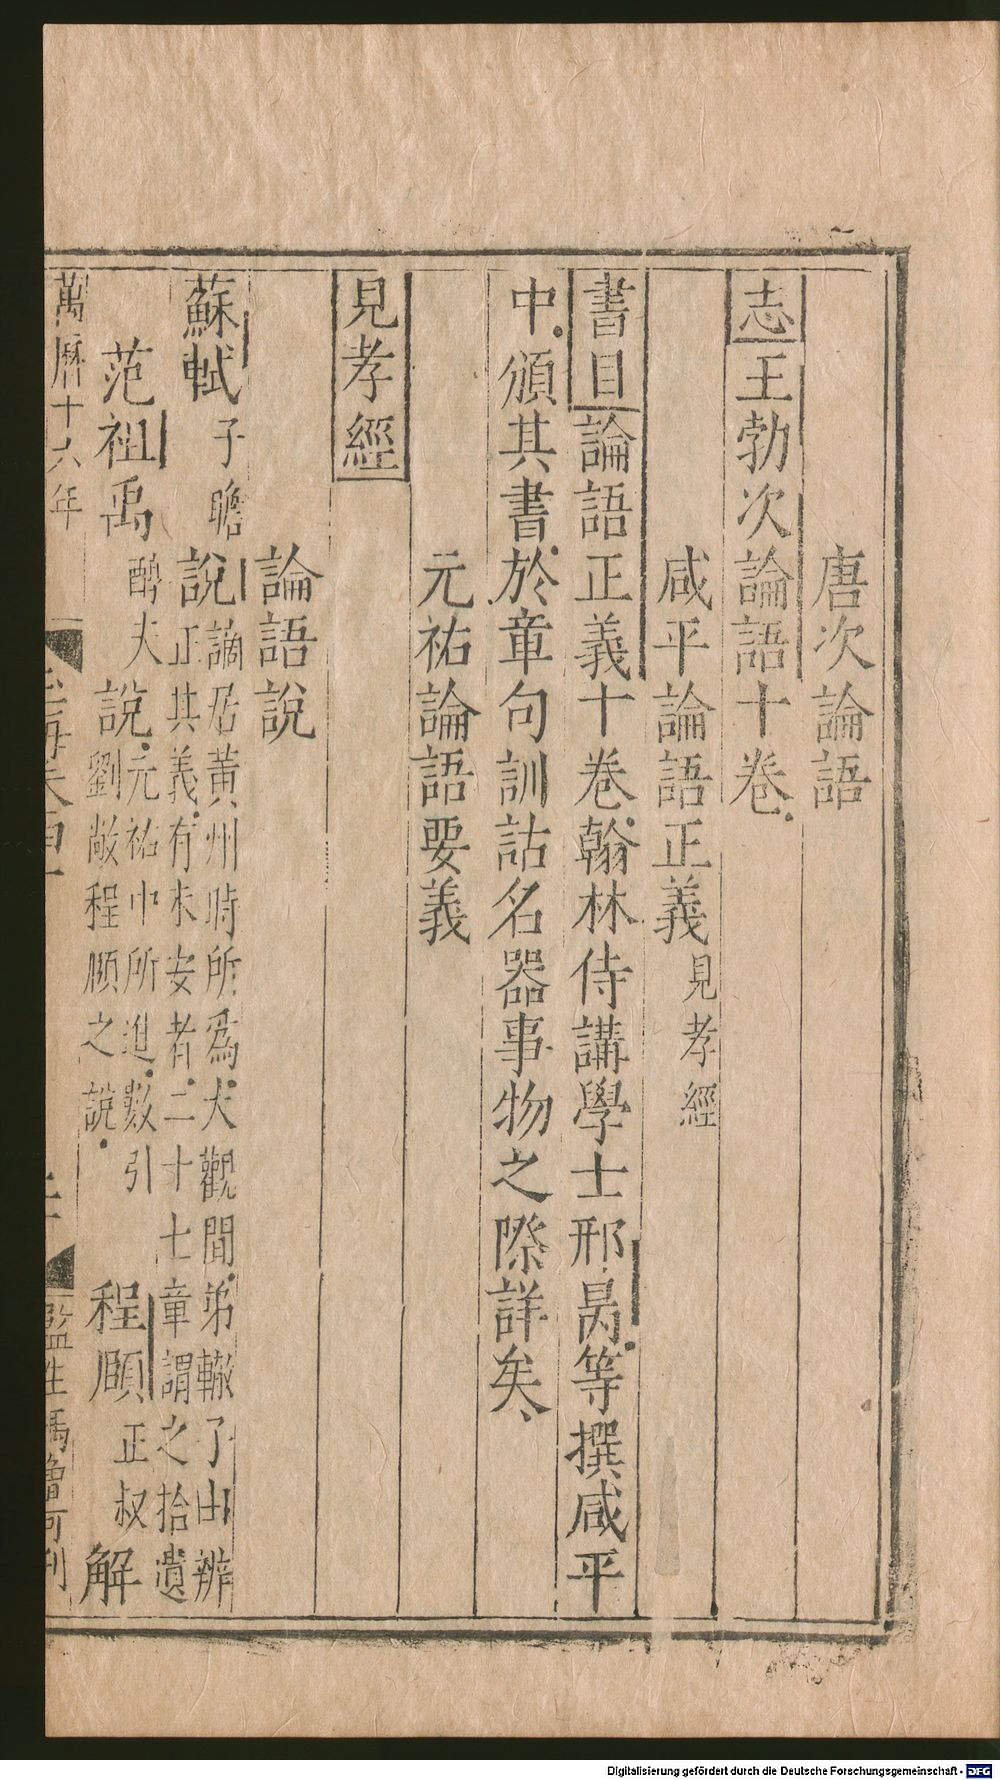 唐次論語
志王勃次論語十卷
咸平論語正義見孝經
書目論語正義十卷翰林侍講學士邢昺等撰咸平
中頒其書於章句訓詁名器事物之際詳矣
元祐論語要義
見孝經
論語說
蘇軾子瞻說謫居黃州時所爲大觀閒弟轍子由辨
正其義有未安者二十七章謂之拾遺
范祖禹醇夫說元祐中所進數引
劉敞程頤之說
程頤正叔解
萬曆十六年
監生馮
刊
Digitalisierung gefördert durch die Deutsche Forschungsgemeinschaft - DFG